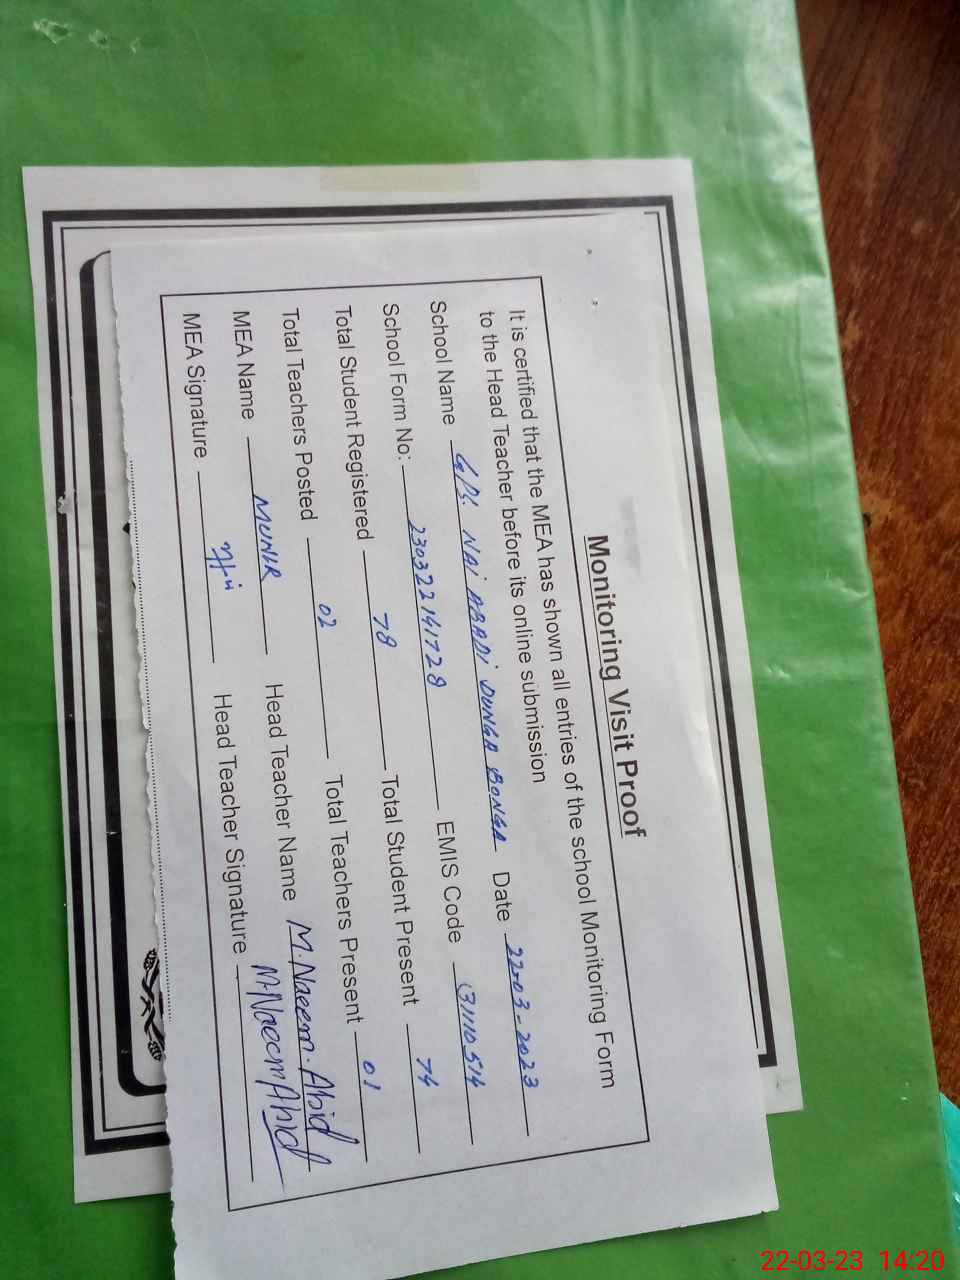 Monitoring Visit Proof
It is certified that the MEA has shown all entries of the school Monitoring Form
to the Head Teacher before its online submission
School Name GPS. NAI ABADI DUNGA BONGA Date 22-03-2023
School Form No: 230322141728 EMIS Code 31110514
Total Student Registered 78 Total Student Present 74
Total Teachers Posted 02 Total Teachers Present 01
MEA Name MUNIR Head Teacher Name M. Naeem. Abid
MEA Signature Head Teacher Signature M. Naeem Abid
22-03-23 14:20